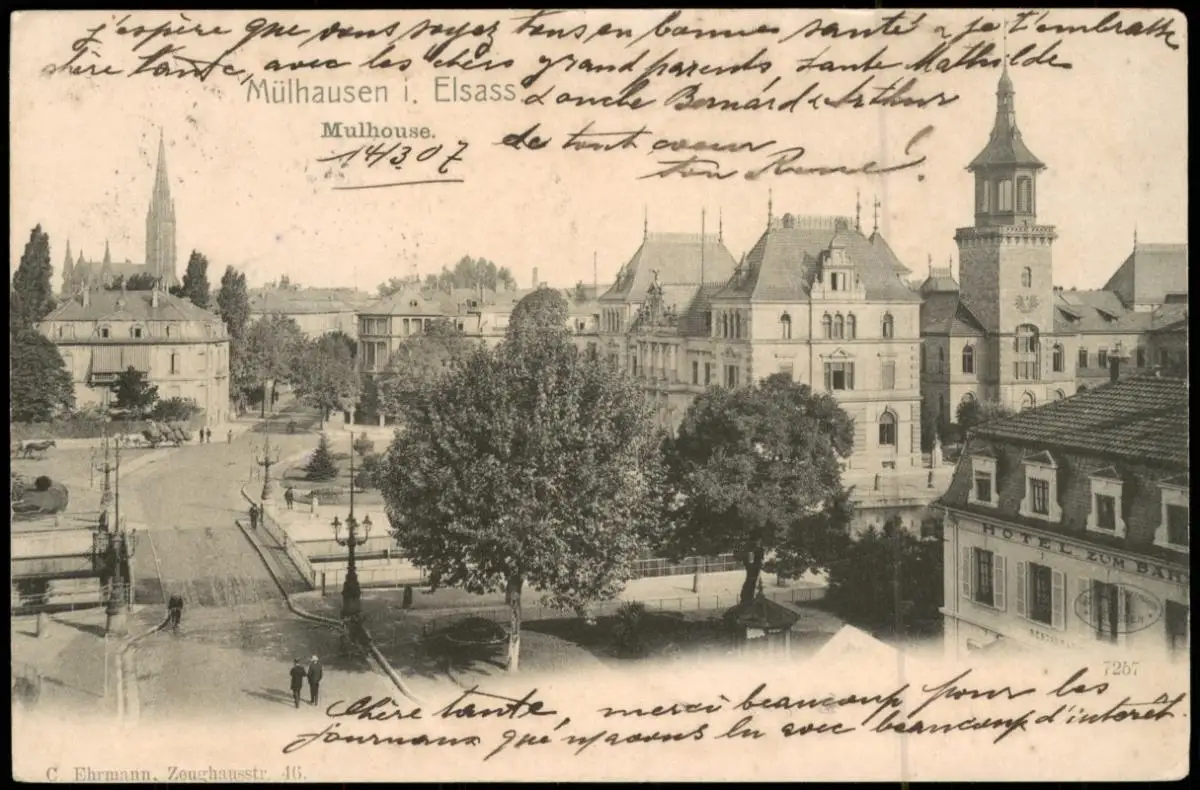 j'espère que vous soyez tous en bonne santé & je t'embrasse
chère tante, avec les chers grand parents, tante Mathilde
Mülhausen i. Elsass
& oncle Bernard & Arthur
Mulhouse.
de tout coeur
14/3 07
ton René!
HOTEL ZUM BAH
7257
Chère tante, merci beaucoup pour les
journaux que nous avons lu avec beaucoup d'intérêt.
C. Ehrmann, Zeughausstr. 46.